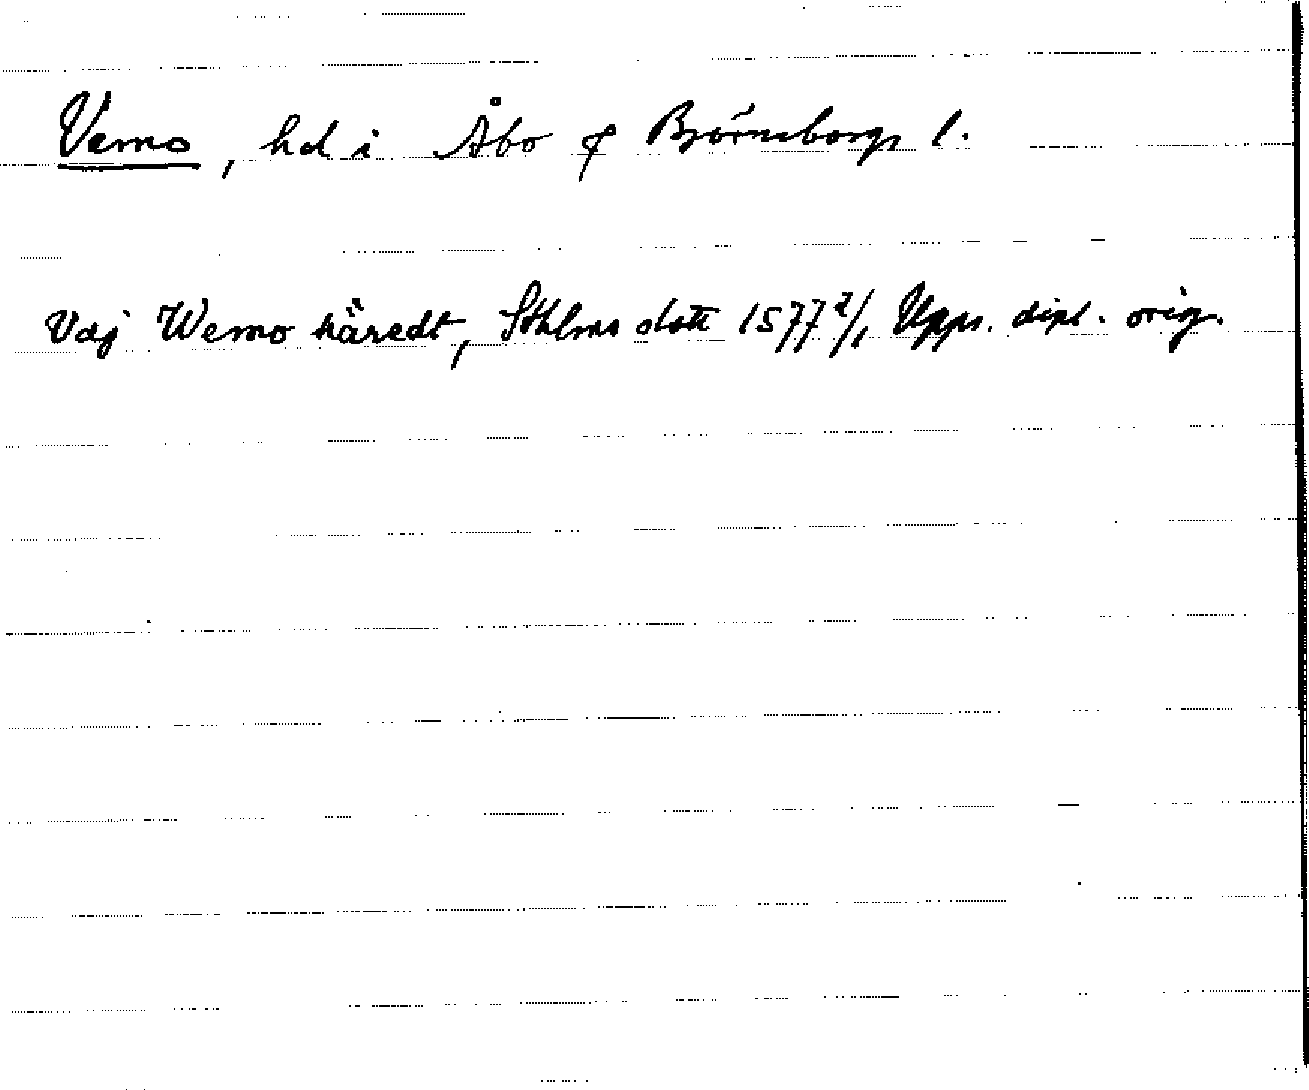 Vemo, hd i Åbo o Björneborgs l.
Vdj Wemo häredt, Sthlms slott 1577 7/1 Upps. dipl. orig.